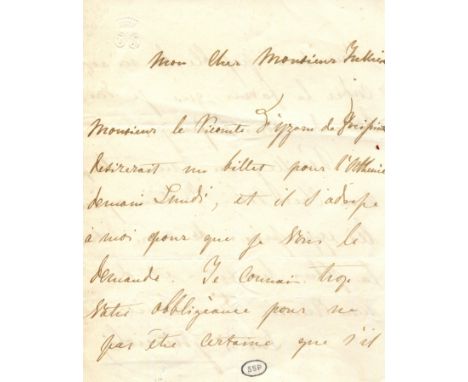 Mon Cher Monsieur
Monsieur le Vicomte d'yzarn de
desirerait un billet pour l'Athenée
demain Lundi, et il s'adresse
à moi pour que je vous le
demande. Je connais trop
votre obbligeance pour ne
pas être certaine, que s'il
SSP